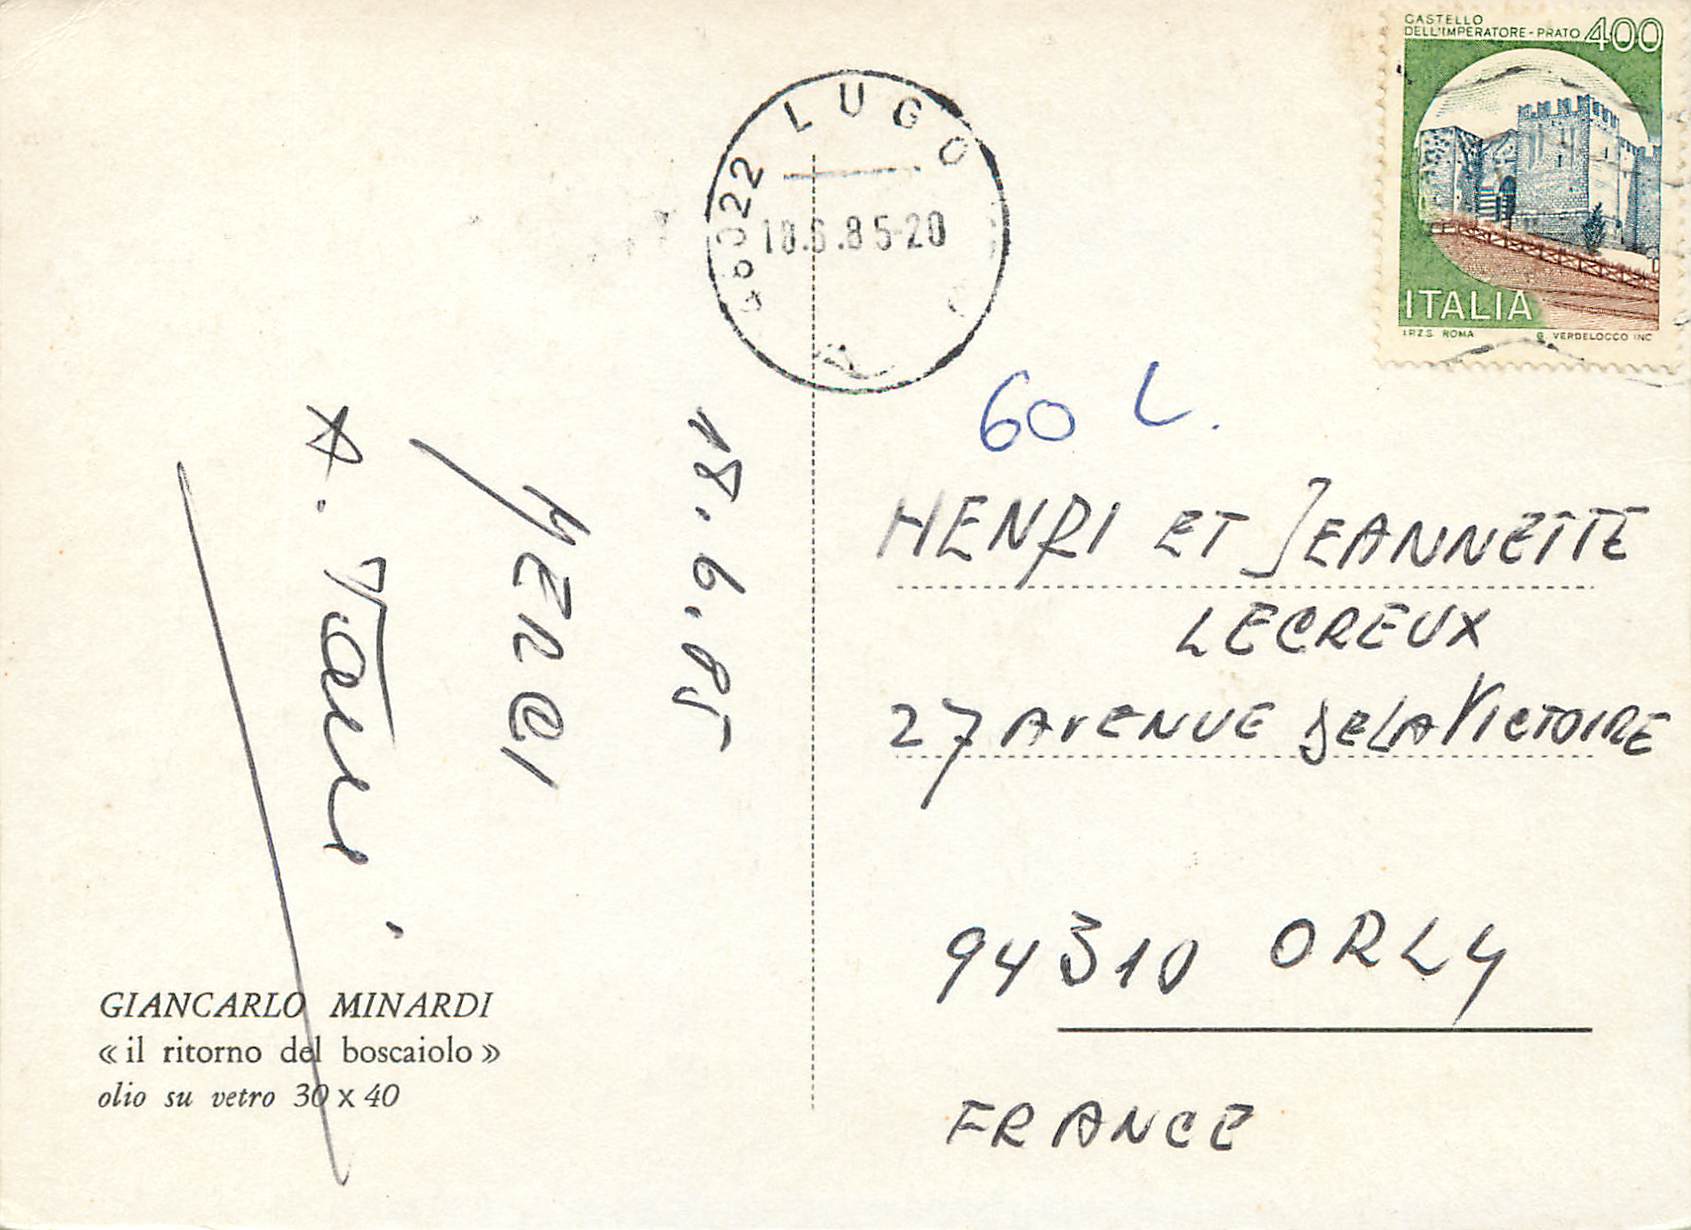 CASTELLO
DELL'IMPERATORE - PRATO 400
ITALIA
I.P.Z.S. ROMA G. VERDELOCCO INC.
48022 LUGO
18.6.85-20
60 L.
18.6.85
MERCI
HENRI ET JEANNETTE
LECREUX
27 AVENUE DE LA VICTOIRE
94310 ORLY
FRANCE
GIANCARLO MINARDI
« il ritorno del boscaiolo »
olio su vetro 30 x 40